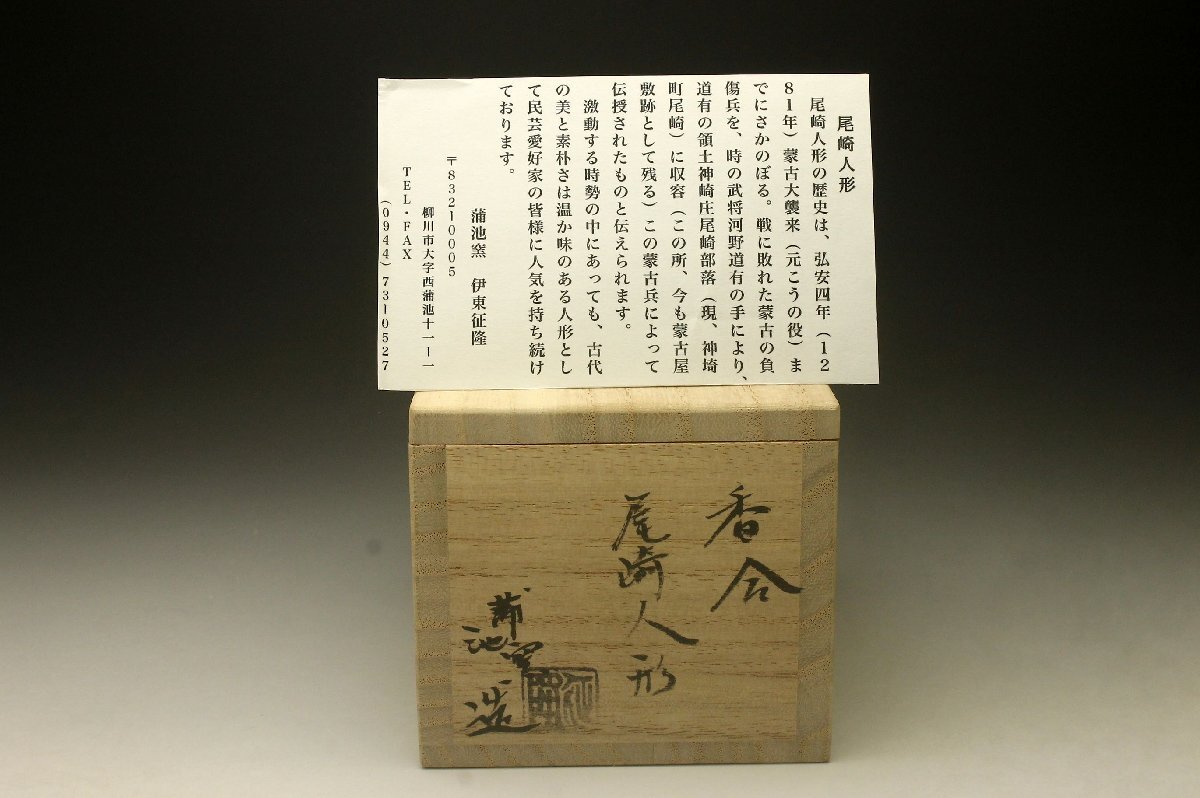 尾崎人形
尾崎人形の歴史は、弘安四年（12
81年）蒙古大襲来（元こうの役）ま
でにさかのぼる。戦に敗れた蒙古の負
傷兵を、時の武将河野道有の手により、
道有の領土神崎庄尾崎部落（現、神埼
町尾崎）に収容（この所、今も蒙古屋
敷跡として残る）この蒙古兵によって
伝授されたものと伝えられます。
激動する時勢の中にあっても、古代
の美と素朴さは温か味のある人形とし
て民芸愛好家の皆様に人気を持ち続け
ております。
蒲池窯　伊東征隆
〒832-0005
柳川市大字西蒲池十一-一
TEL・FAX
(0944)73-0527
香合
尾崎人形
蒲池窯
造